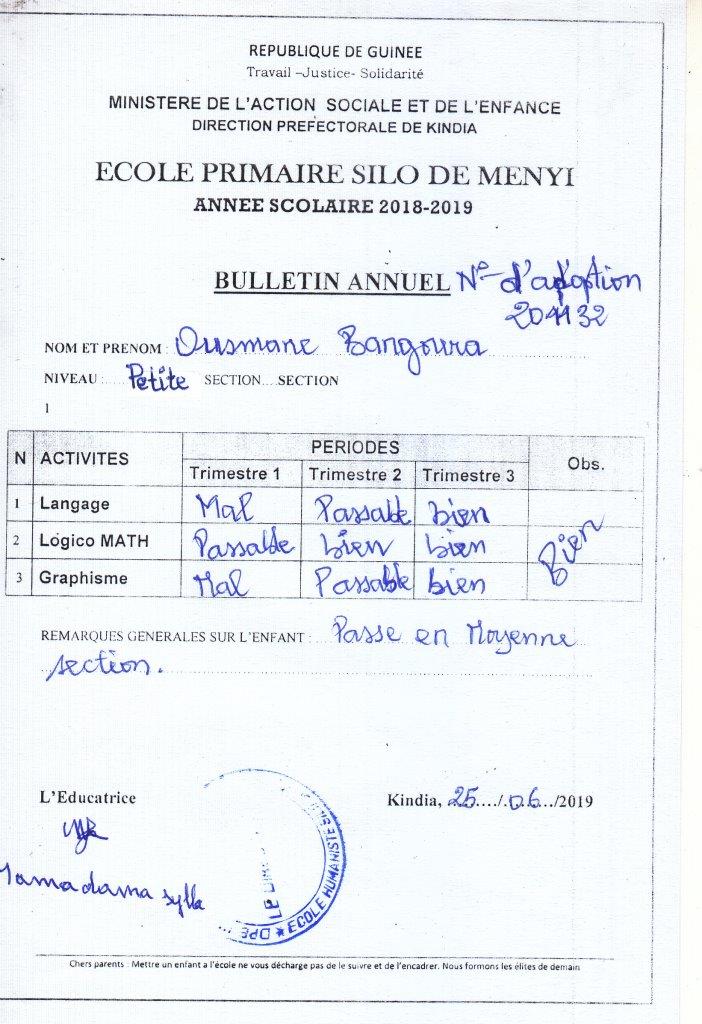 REPUBLIQUE DE GUINEE
Travail –Justice- Solidarité
MINISTERE DE L'ACTION SOCIALE ET DE L'ENFANCE
DIRECTION PREFECTORALE DE KINDIA
ECOLE PRIMAIRE SILO DE MENYI
ANNEE SCOLAIRE 2018-2019
BULLETIN ANNUEL N° d'adoption
204132
NOM ET PRENOM : Ousmane Bangoura
NIVEAU : Petite SECTION....SECTION
1
N ACTIVITES PERIODES Obs.
Trimestre 1 Trimestre 2 Trimestre 3
1 Langage Mal Passable bien
2 Logico MATH Passable bien bien Bien
3 Graphisme Mal Passable bien
REMARQUES GENERALES SUR L'ENFANT : Passe en Moyenne
section.
L'Educatrice Kindia, 25..../.06.../2019
sylla
DPE ★ ECOLE HUMANISTE
Chers parents : Mettre un enfant a l'école ne vous décharge pas de le suivre et de l'encadrer. Nous formons les élites de demain